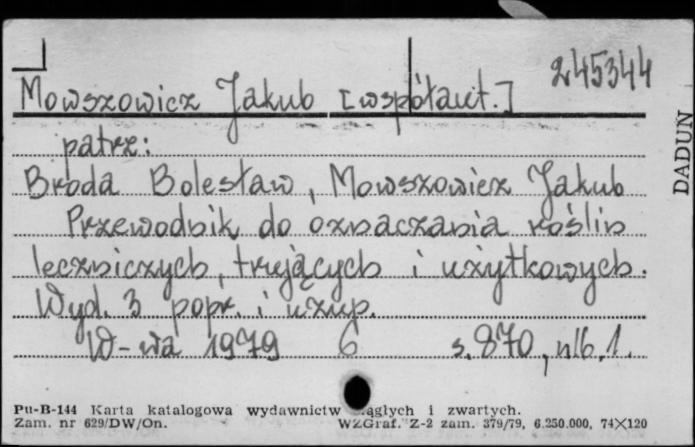 245344
Mowszowicz Jakub [współaut.]
patrz:
Broda Bolesław, Mowszowicz Jakub
Przewodnik do oznaczania roślin
leczniczych, trujących i użytkowych.
Wyd. 3 popr. i uzup.
W-wa 1979 6 s. 870, nlb. 1.
Pu-B-144 Karta katalogowa wydawnictw ciągłych i zwartych.
Zam. nr 629/DW/On. WZGraf. Z-2 zam. 379/79, 6.250.000, 74×120
DADUN